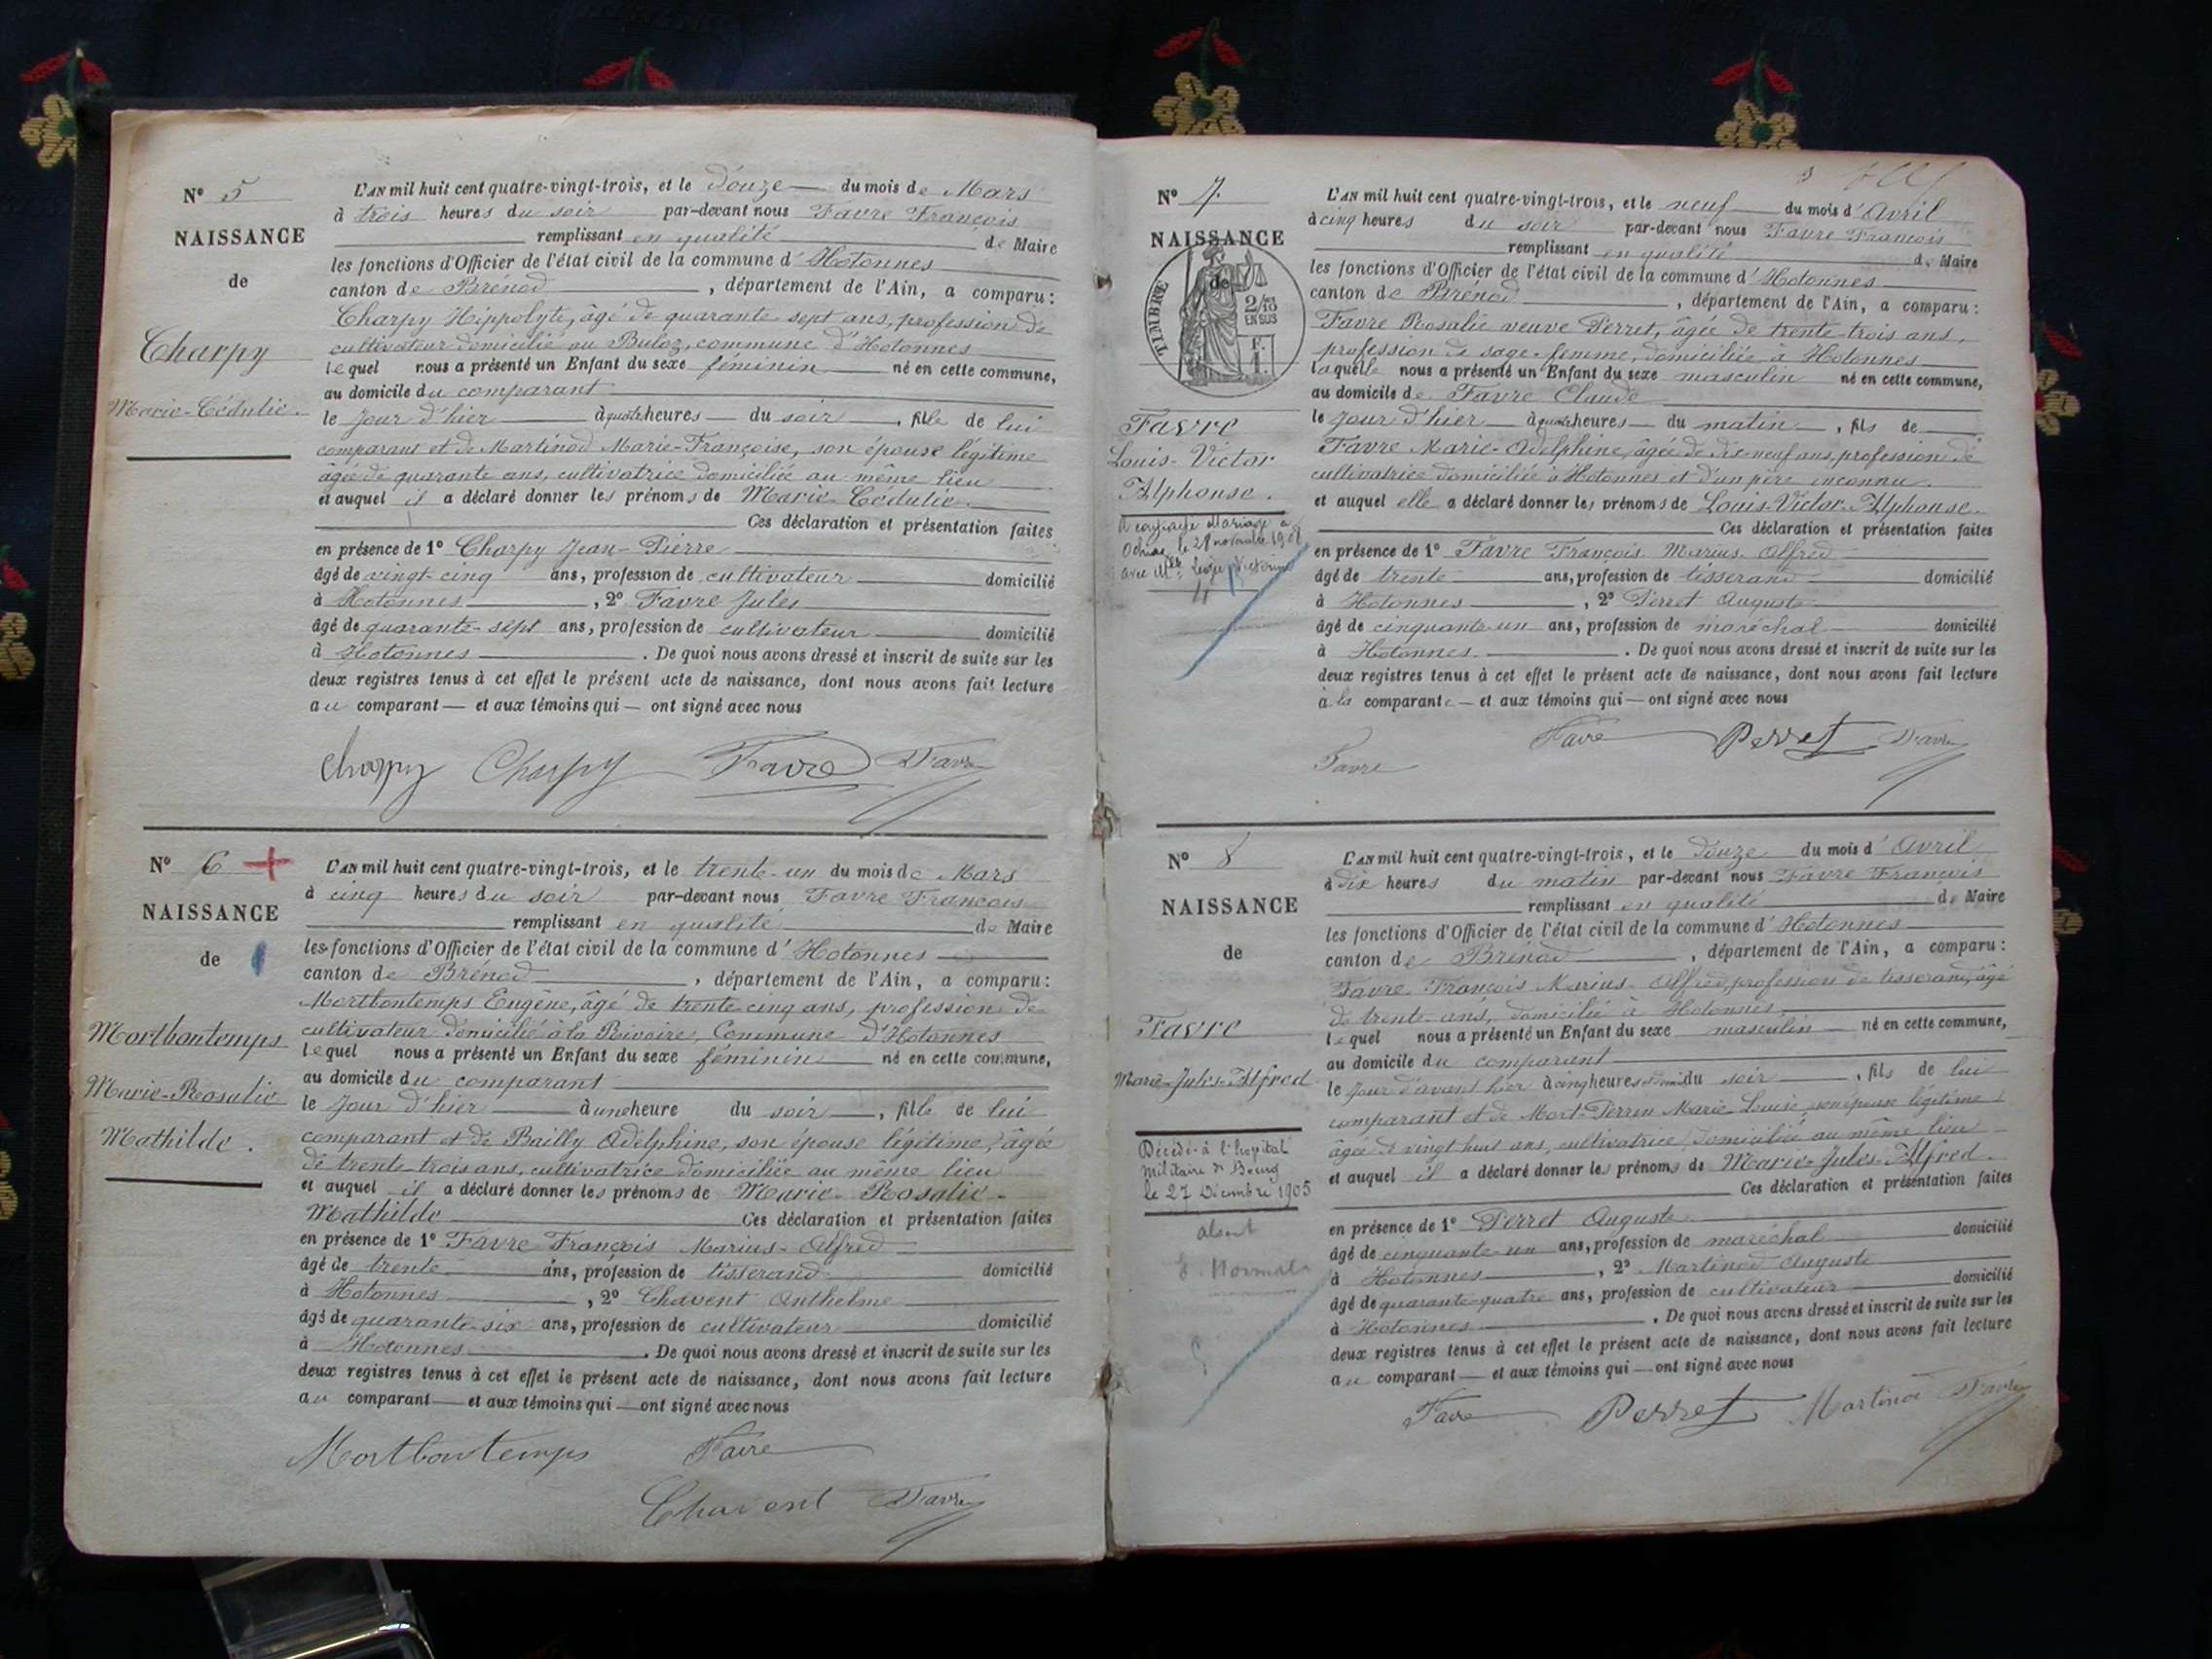 N° 5
NAISSANCE
de
Charpy
Marie-Cédulie.
L'AN mil huit cent quatre-vingt-trois, et le douze du mois de Mars
à trois heures du soir par-devant nous Favre François
remplissant en qualité de Maire
les fonctions d'Officier de l'état civil de la commune d'Hotonnes
canton de Brénod, département de l'Ain, a comparu:
Charpy Hippolyte, âgé de quarante-sept ans, profession de
cultivateur domicilié au Buloz, commune d'Hotonnes
lequel nous a présenté un Enfant du sexe féminin né en cette commune,
au domicile du comparant
le jour d'hier à quatre heures du soir, fille de lui
comparant et de Martinod Marie-Françoise, son épouse légitime
âgée de quarante ans, cultivatrice domiciliée au même lieu
et auquel il a déclaré donner les prénoms de Marie-Cédulie.
Ces déclaration et présentation faites
en présence de 1° Charpy Jean-Pierre
âgé de vingt-cinq ans, profession de cultivateur domicilié
à Hotonnes, 2° Favre Jules
âgé de quarante-sept ans, profession de cultivateur domicilié
à Hotonnes. De quoi nous avons dressé et inscrit de suite sur les
deux registres tenus à cet effet le présent acte de naissance, dont nous avons fait lecture
au comparant — et aux témoins qui — ont signé avec nous
Charpy Charpy Favre Favre
N° 6
NAISSANCE
de
Mortbontemps
Marie-Rosalie
Mathilde.
L'AN mil huit cent quatre-vingt-trois, et le trente-un du mois de Mars
à cinq heures du soir par-devant nous Favre François
remplissant en qualité de Maire
les fonctions d'Officier de l'état civil de la commune d'Hotonnes
canton de Brénod, département de l'Ain, a comparu:
Mortbontemps Eugène, âgé de trente-cinq ans, profession de
cultivateur domicilié à la Rivoire, Commune d'Hotonnes
lequel nous a présenté un Enfant du sexe féminin né en cette commune,
au domicile du comparant
le jour d'hier à une heure du soir, fille de lui
comparant et de Bailly Adelphine, son épouse légitime, âgée
de trente-trois ans, cultivatrice domiciliée au même lieu
et auquel il a déclaré donner les prénoms de Marie-Rosalie-
Mathilde Ces déclaration et présentation faites
en présence de 1° Favre François Marius-Alfred
âgé de trente ans, profession de tisserand domicilié
à Hotonnes, 2° Chavent Anthelme
âgé de quarante-six ans, profession de cultivateur domicilié
à Hotonnes. De quoi nous avons dressé et inscrit de suite sur les
deux registres tenus à cet effet le présent acte de naissance, dont nous avons fait lecture
au comparant — et aux témoins qui — ont signé avec nous
Mortbontemps Favre
Chavent Favre
N° 7
NAISSANCE
de
TIMBRE
2/10
EN SUS
F.
1.
Favre
Louis-Victor
Alphonse.
A contracté Mariage à
le 28 novembre 1908
avec Mlle
L'AN mil huit cent quatre-vingt-trois, et le neuf du mois d'Avril
à cinq heures du soir par-devant nous Favre François
remplissant en qualité de Maire
les fonctions d'Officier de l'état civil de la commune d'Hotonnes
canton de Brénod, département de l'Ain, a comparu:
Favre Rosalie veuve Perret, âgée de trente-trois ans,
profession de sage-femme, domiciliée à Hotonnes
laquelle nous a présenté un Enfant du sexe masculin né en cette commune,
au domicile de Favre Claude
le jour d'hier à quatre heures du matin, fils de
Favre Marie-Adelphine, âgée de dix-neuf ans, profession de
cultivatrice domiciliée à Hotonnes et d'un père inconnu.
et auquel elle a déclaré donner les prénoms de Louis-Victor-Alphonse.
Ces déclaration et présentation faites
en présence de 1° Favre François Marius Alfred
âgé de trente ans, profession de tisserand domicilié
à Hotonnes, 2° Perret Auguste
âgé de cinquante-un ans, profession de maréchal domicilié
à Hotonnes. De quoi nous avons dressé et inscrit de suite sur les
deux registres tenus à cet effet le présent acte de naissance, dont nous avons fait lecture
à la comparante — et aux témoins qui — ont signé avec nous
Favre Perret Favre
Favre
N° 8
NAISSANCE
de
Favre
Marie-Jules-Alfred
Décédé à l'hopital
militaire de Bourg
le 27 Décembre 1905
absent
L'AN mil huit cent quatre-vingt-trois, et le douze du mois d'Avril
à dix heures du matin par-devant nous Favre François
remplissant en qualité de Maire
les fonctions d'Officier de l'état civil de la commune d'Hotonnes
canton de Brénod, département de l'Ain, a comparu:
Favre François Marius Alfred, profession de tisserand, âgé
de trente ans, domicilié à Hotonnes
lequel nous a présenté un Enfant du sexe masculin né en cette commune,
au domicile du comparant
le jour d'avant hier à cinq heures et demi du soir, fils de lui
comparant et de Mort-Perrin Marie-Louise, son épouse légitime
âgée de vingt huit ans, cultivatrice, domiciliée au même lieu
et auquel il a déclaré donner les prénoms de Marie-Jules-Alfred.
Ces déclaration et présentation faites
en présence de 1° Perret Auguste
âgé de cinquante-un ans, profession de maréchal domicilié
à Hotonnes, 2° Martinod Auguste
âgé de quarante-quatre ans, profession de cultivateur domicilié
à Hotonnes. De quoi nous avons dressé et inscrit de suite sur les
deux registres tenus à cet effet le présent acte de naissance, dont nous avons fait lecture
au comparant — et aux témoins qui — ont signé avec nous
Favre Perret Martinod Favre